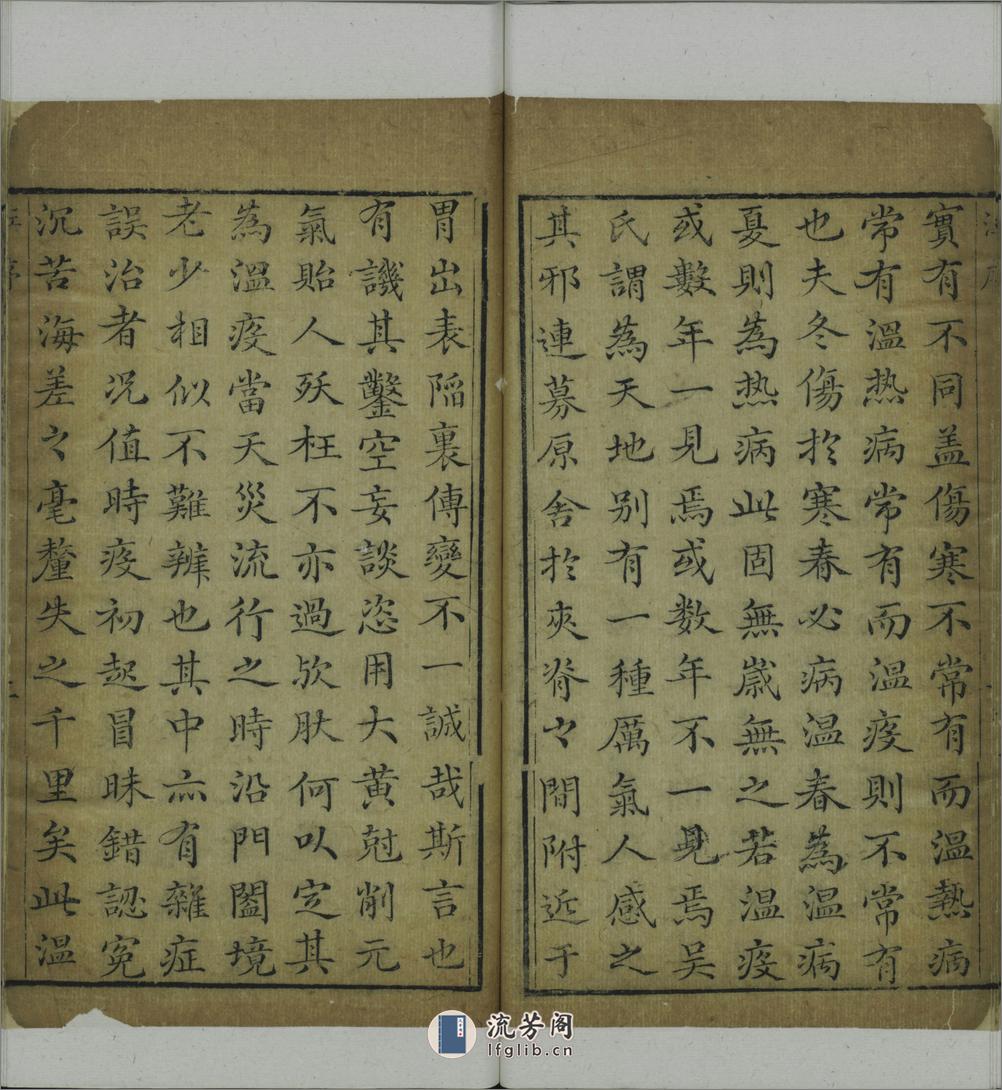 實有不同盖傷寒不常有而溫熱病
常有溫热病常有而溫疫則不常有
也夫冬傷於寒春必病溫春為溫病
夏則為热病此固無歲無之若溫疫
或數年一見焉或数年不一見焉吴
氏謂為天地别有一種厲氣人感之
其邪連募原舍於夾脊之間附近于
胃出表陷裏傳變不一誠哉斯言也
有譏其鑿空妄談恣用大黄尅削元
氣貽人殀枉不亦過欤肰何以定其
為溫疫當天災流行之時沿門闔境
老少相似不難辨也其中亦有雜症
誤治者况值時疫初起冒昧錯認寃
沉苦海差之毫釐失之千里矣此溫
流芳阁
lfglib.cn